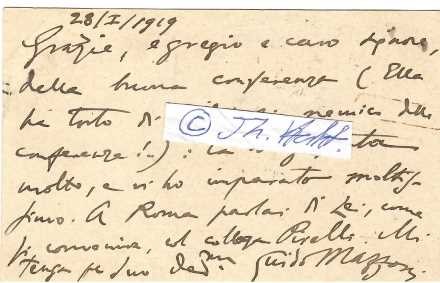 28/I/1919
Grazie, egregio e caro signore,
della buona conferenza (Ella
ha torto di nemico delle
conferenze!) : La
© Th. 
molto, e vi ho imparato moltis-
simo. A Roma parlai di Lei, come
si conveniva, col collega Pirelli. Mi
tenga pel suo dev.mo Guido Mazzoni